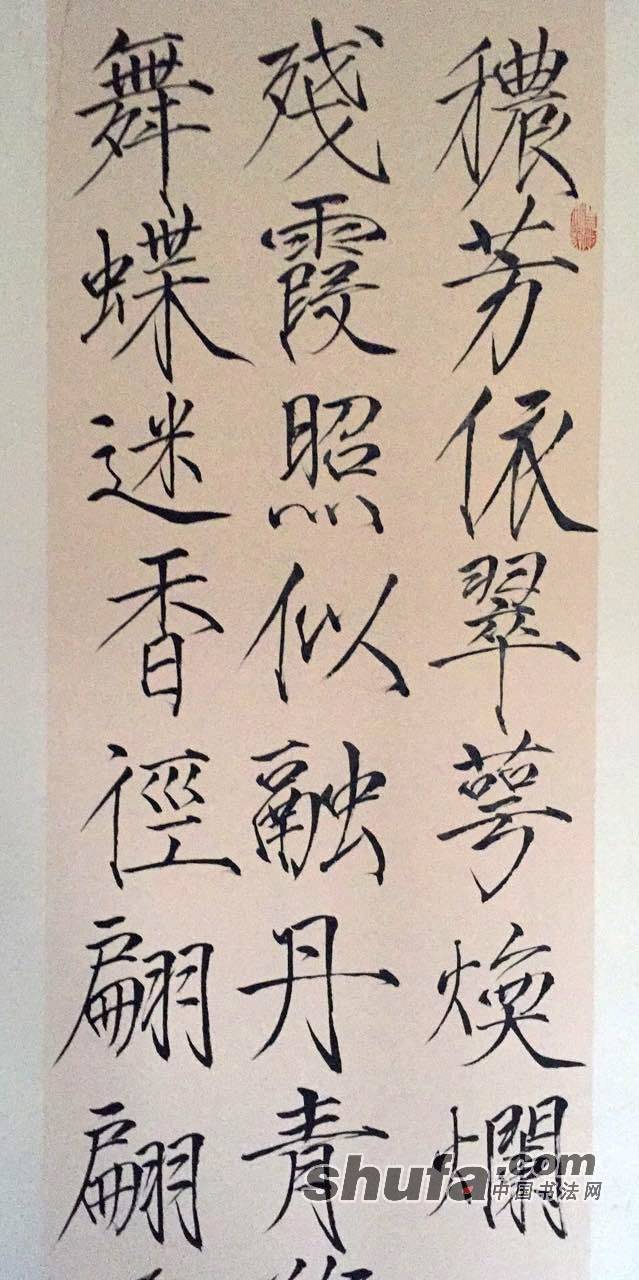 穠芳依翠萼煥爛
殘霞照似融丹青
舞蝶迷香徑翩翩
shufa.com
中国书法网